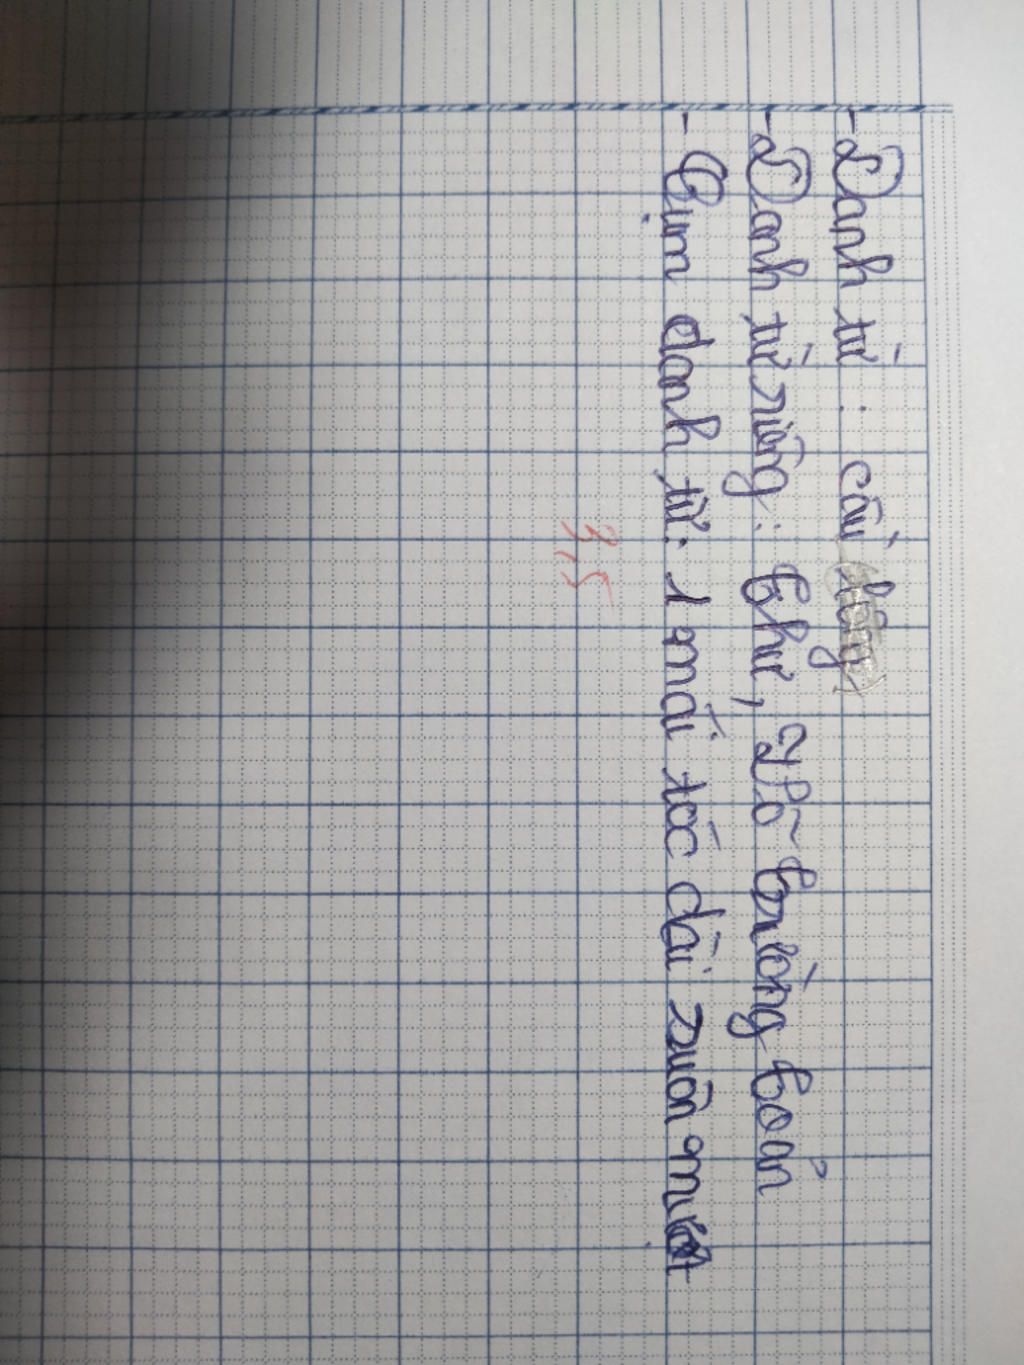 - Danh từ: cầu lông
- Danh từ riêng: Thư, Võ Trường Toản
- Cụm danh từ: 1 mái tóc dài suôn mượt
3,5